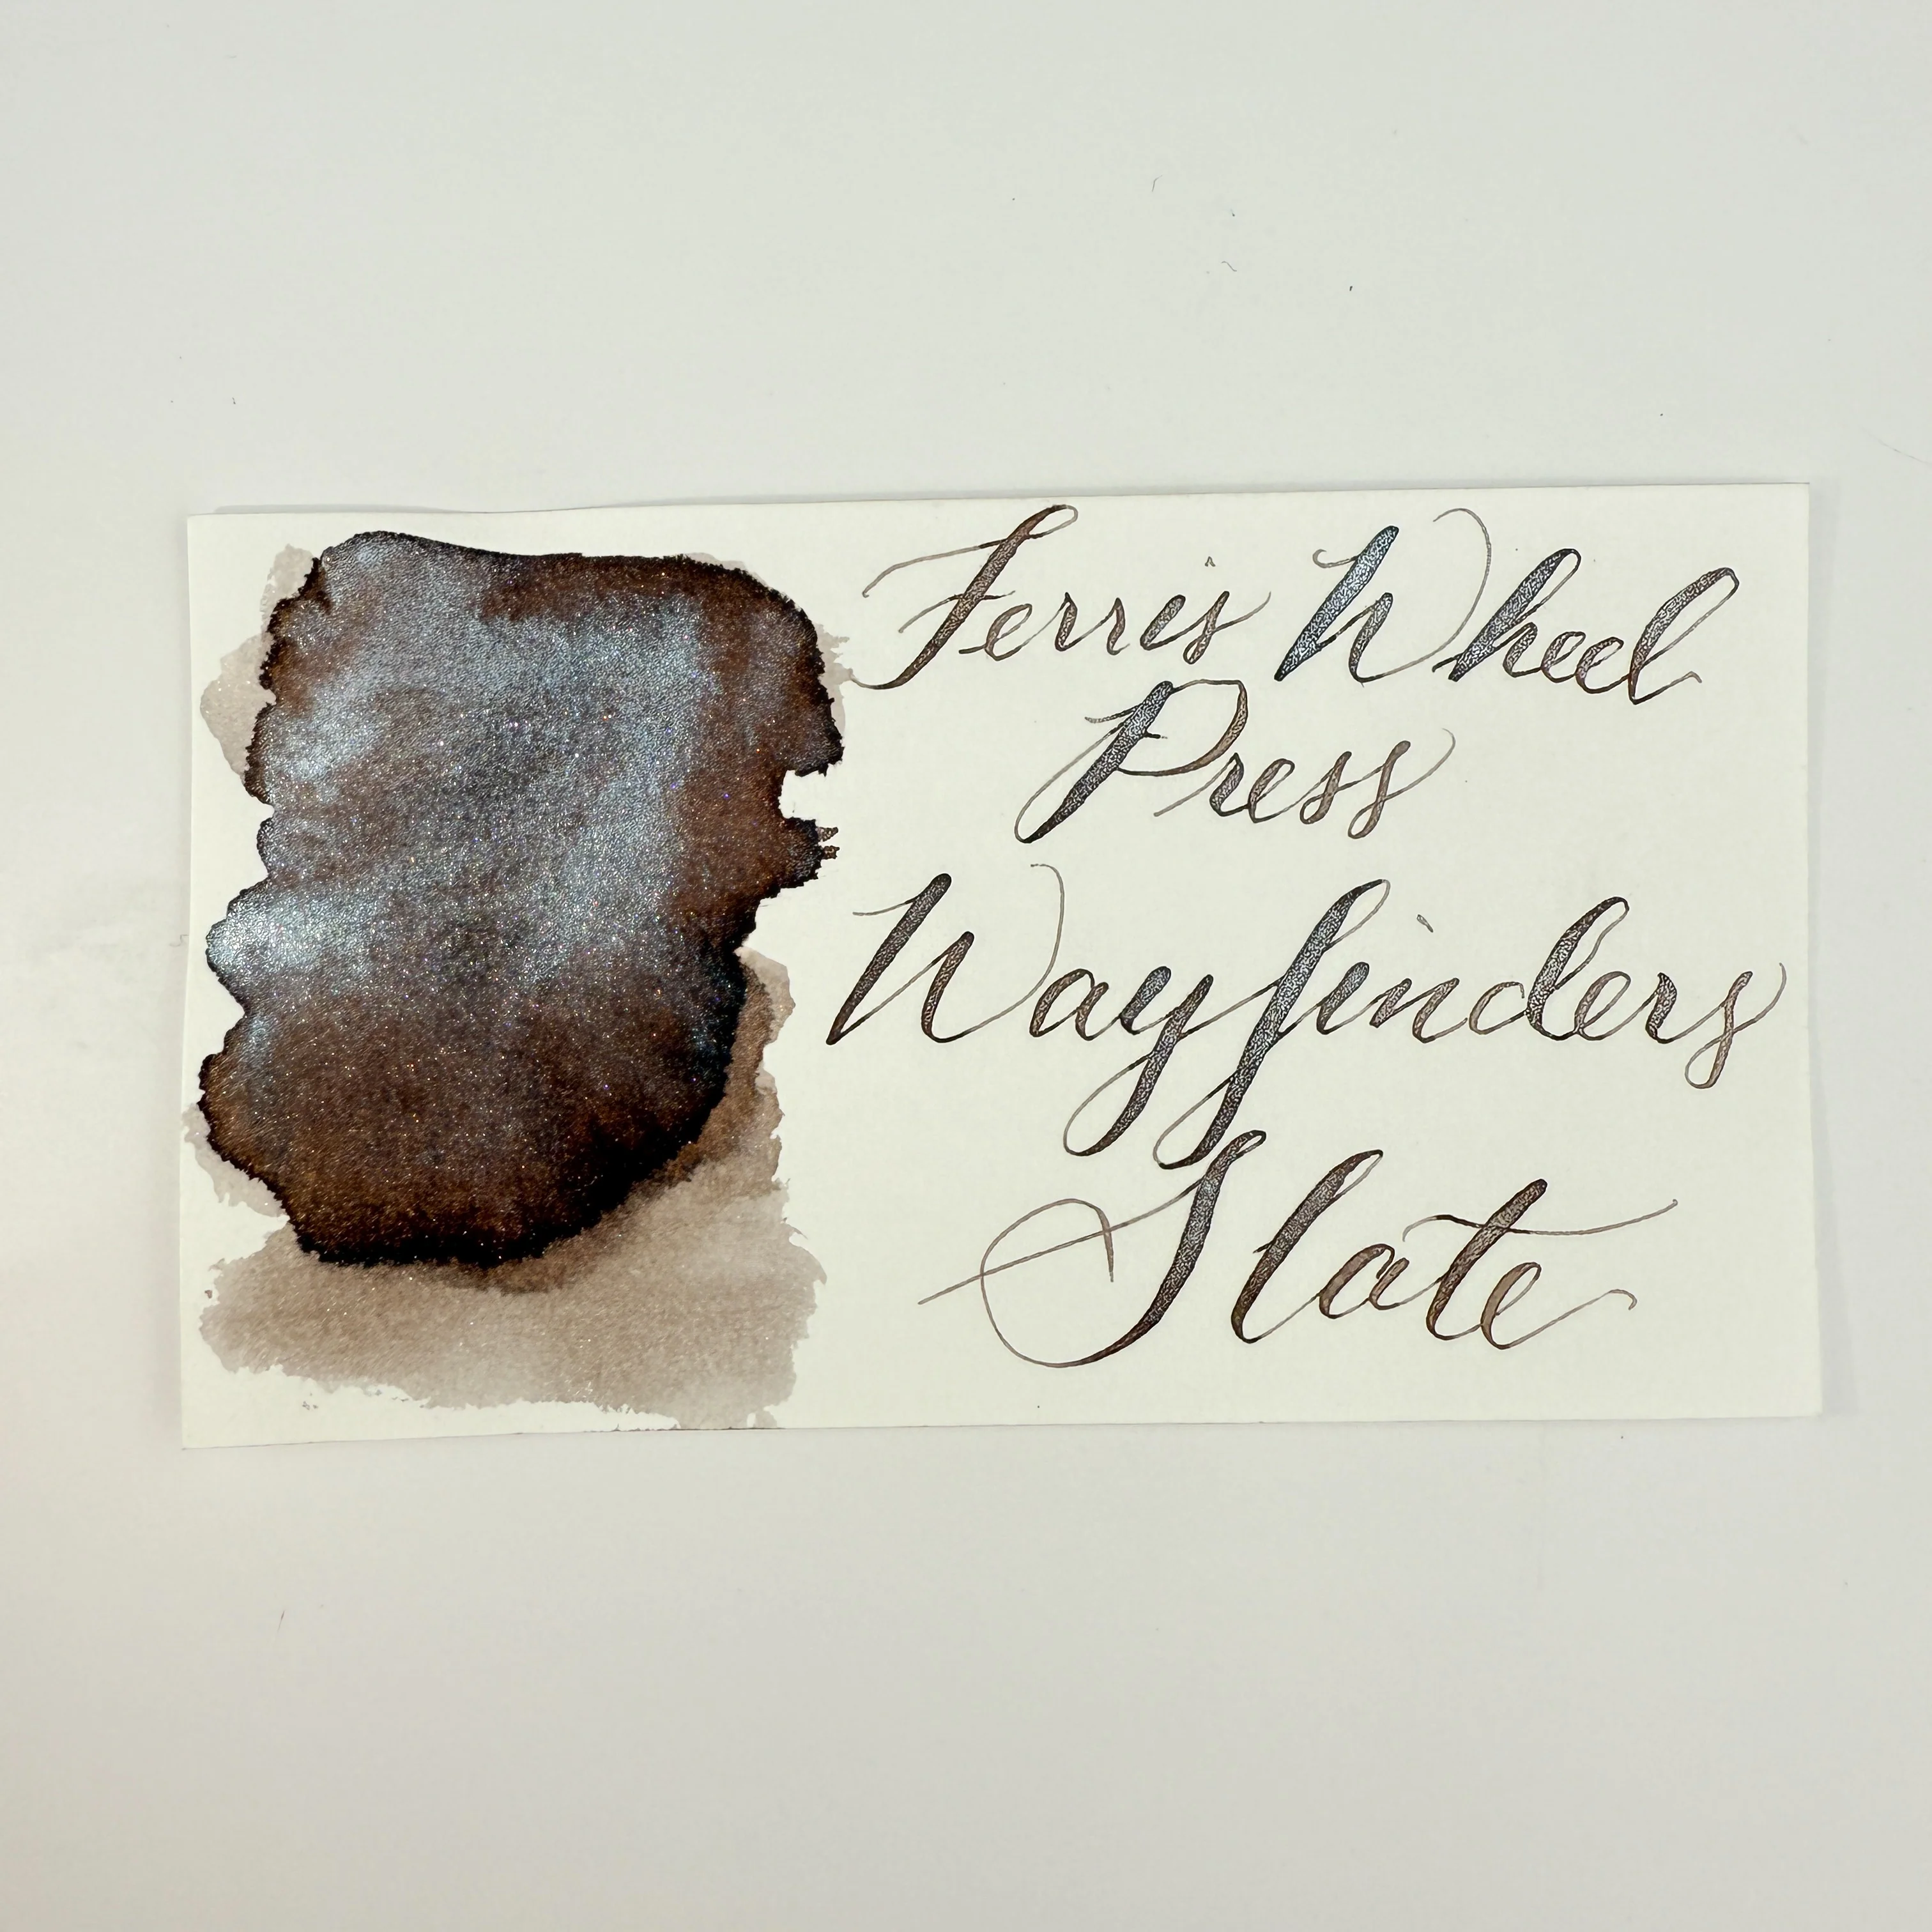 Ferris Wheel
Press
Wayfinders
Slate